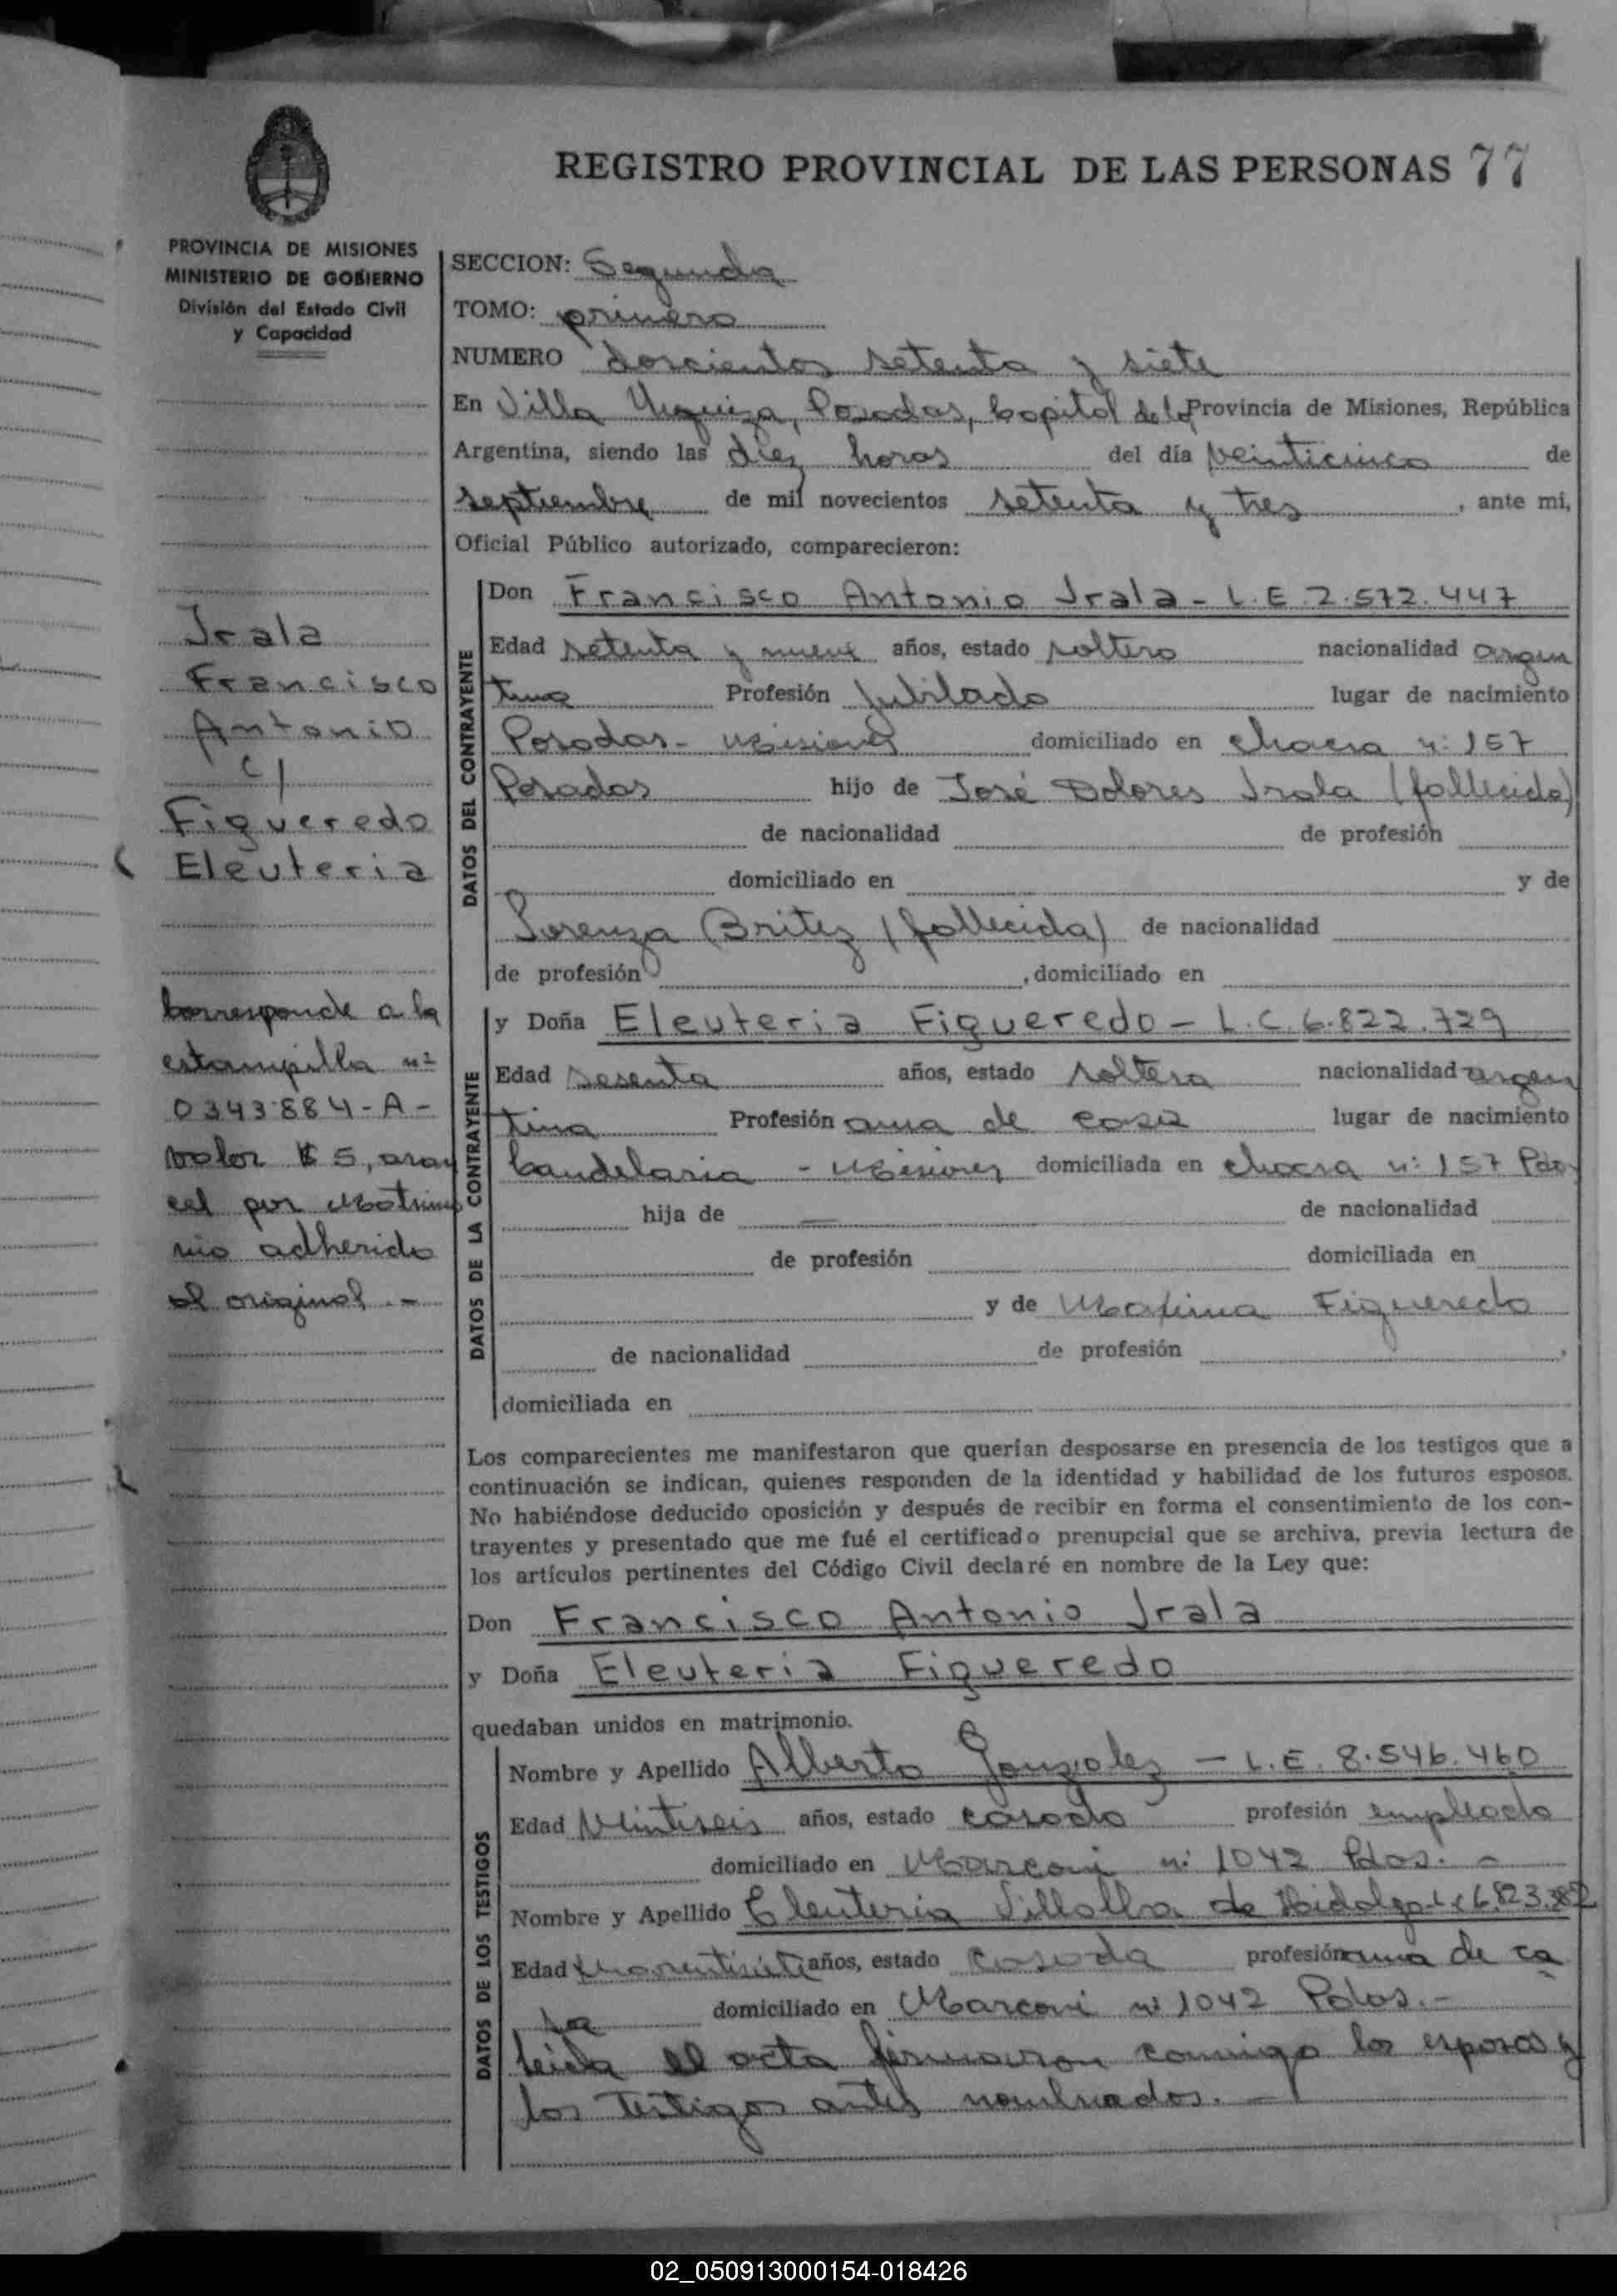 REGISTRO PROVINCIAL DE LAS PERSONAS 77
PROVINCIA DE MISIONES
MINISTERIO DE GOBIERNO
División del Estado Civil
y Capacidad
Irala
Francisco
Antonio
c/
Figueredo
Eleuteria
Corresponde a la
estampilla nº
0343884-A-
valor $ 5, aran
cel por Matrimo
nio adherido
al original.-
SECCION: Segunda
TOMO: primero
NUMERO doscientos setenta y siete
En Villa Urquiza, Posadas, Capital de la Provincia de Misiones, República
Argentina, siendo las diez horas del día veinticinco de
septiembre de mil novecientos setenta y tres, ante mi,
Oficial Público autorizado, comparecieron:
DATOS DEL CONTRAYENTE
Don Francisco Antonio Irala - L.E. 2.572.447
Edad setenta y nueve años, estado soltero nacionalidad argen
tina Profesión Jubilado lugar de nacimiento
Posadas - Misiones domiciliado en chacra nº 157
Posadas hijo de José Dolores Irala (fallecido)
de nacionalidad de profesión
domiciliado en y de
Lorenza Britez (fallecida) de nacionalidad
de profesión , domiciliado en
DATOS DE LA CONTRAYENTE
y Doña Eleuteria Figueredo - L.C. 6.822.729
Edad Sesenta años, estado soltera nacionalidad argen
tina Profesión ama de casa lugar de nacimiento
Candelaria - Misiones domiciliada en chacra nº 157 Pdas
hija de — de nacionalidad
de profesión domiciliada en
y de Maxima Figueredo
de nacionalidad de profesión ,
domiciliada en
Los comparecientes me manifestaron que querían desposarse en presencia de los testigos que a
continuación se indican, quienes responden de la identidad y habilidad de los futuros esposos.
No habiéndose deducido oposición y después de recibir en forma el consentimiento de los con-
trayentes y presentado que me fué el certificado prenupcial que se archiva, previa lectura de
los artículos pertinentes del Código Civil declaré en nombre de la Ley que:
Don Francisco Antonio Irala
y Doña Eleuteria Figueredo
quedaban unidos en matrimonio.
DATOS DE LOS TESTIGOS
Nombre y Apellido Alberto Gonzalez - L.E. 8.546.460
Edad Veintiseis años, estado casado profesión empleado
domiciliado en Marconi nº 1042 Pdas. -
Nombre y Apellido Eleuteria Villalba de Hidalgo L.C 6.823.382
Edad Cuarentisiete años, estado casada profesión ama de ca
sa domiciliado en Marconi nº 1042 Pdas.-
Leida el acta firmaron conmigo los esposos y
los testigos antes nombrados. -
02_050913000154-018426